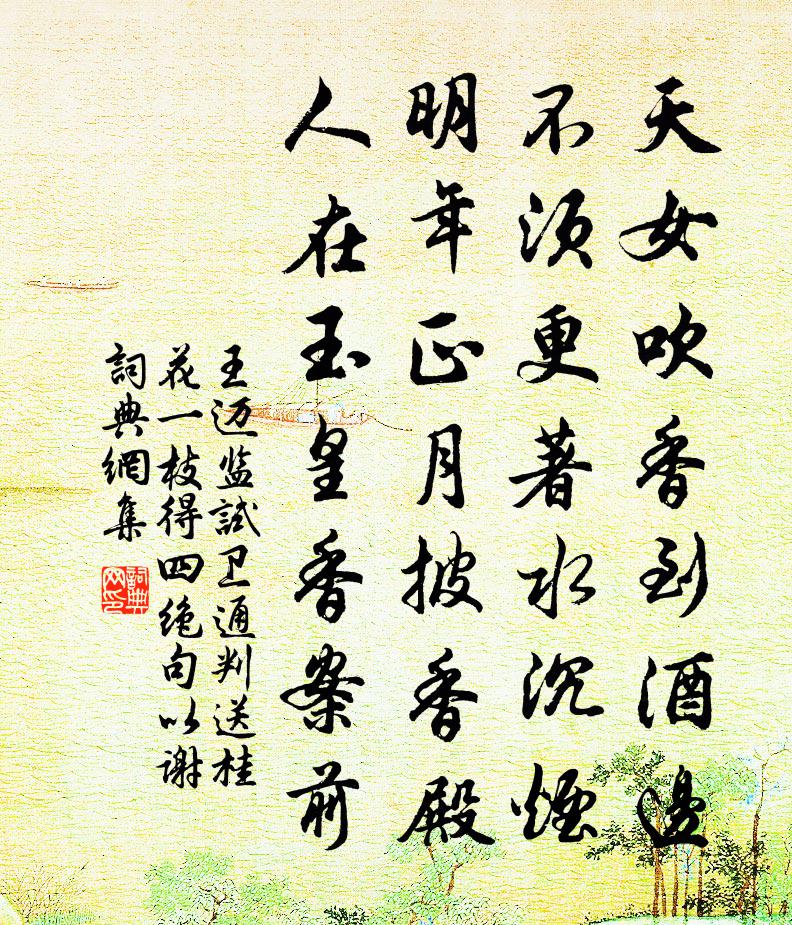 天女吹香到酒邊
不須更著水沉煙
明年正月披香殿
人在玉皇香案前
王迈监試卫通判送桂
花一枝得四绝句以谢
詞典網集
詞典
网印